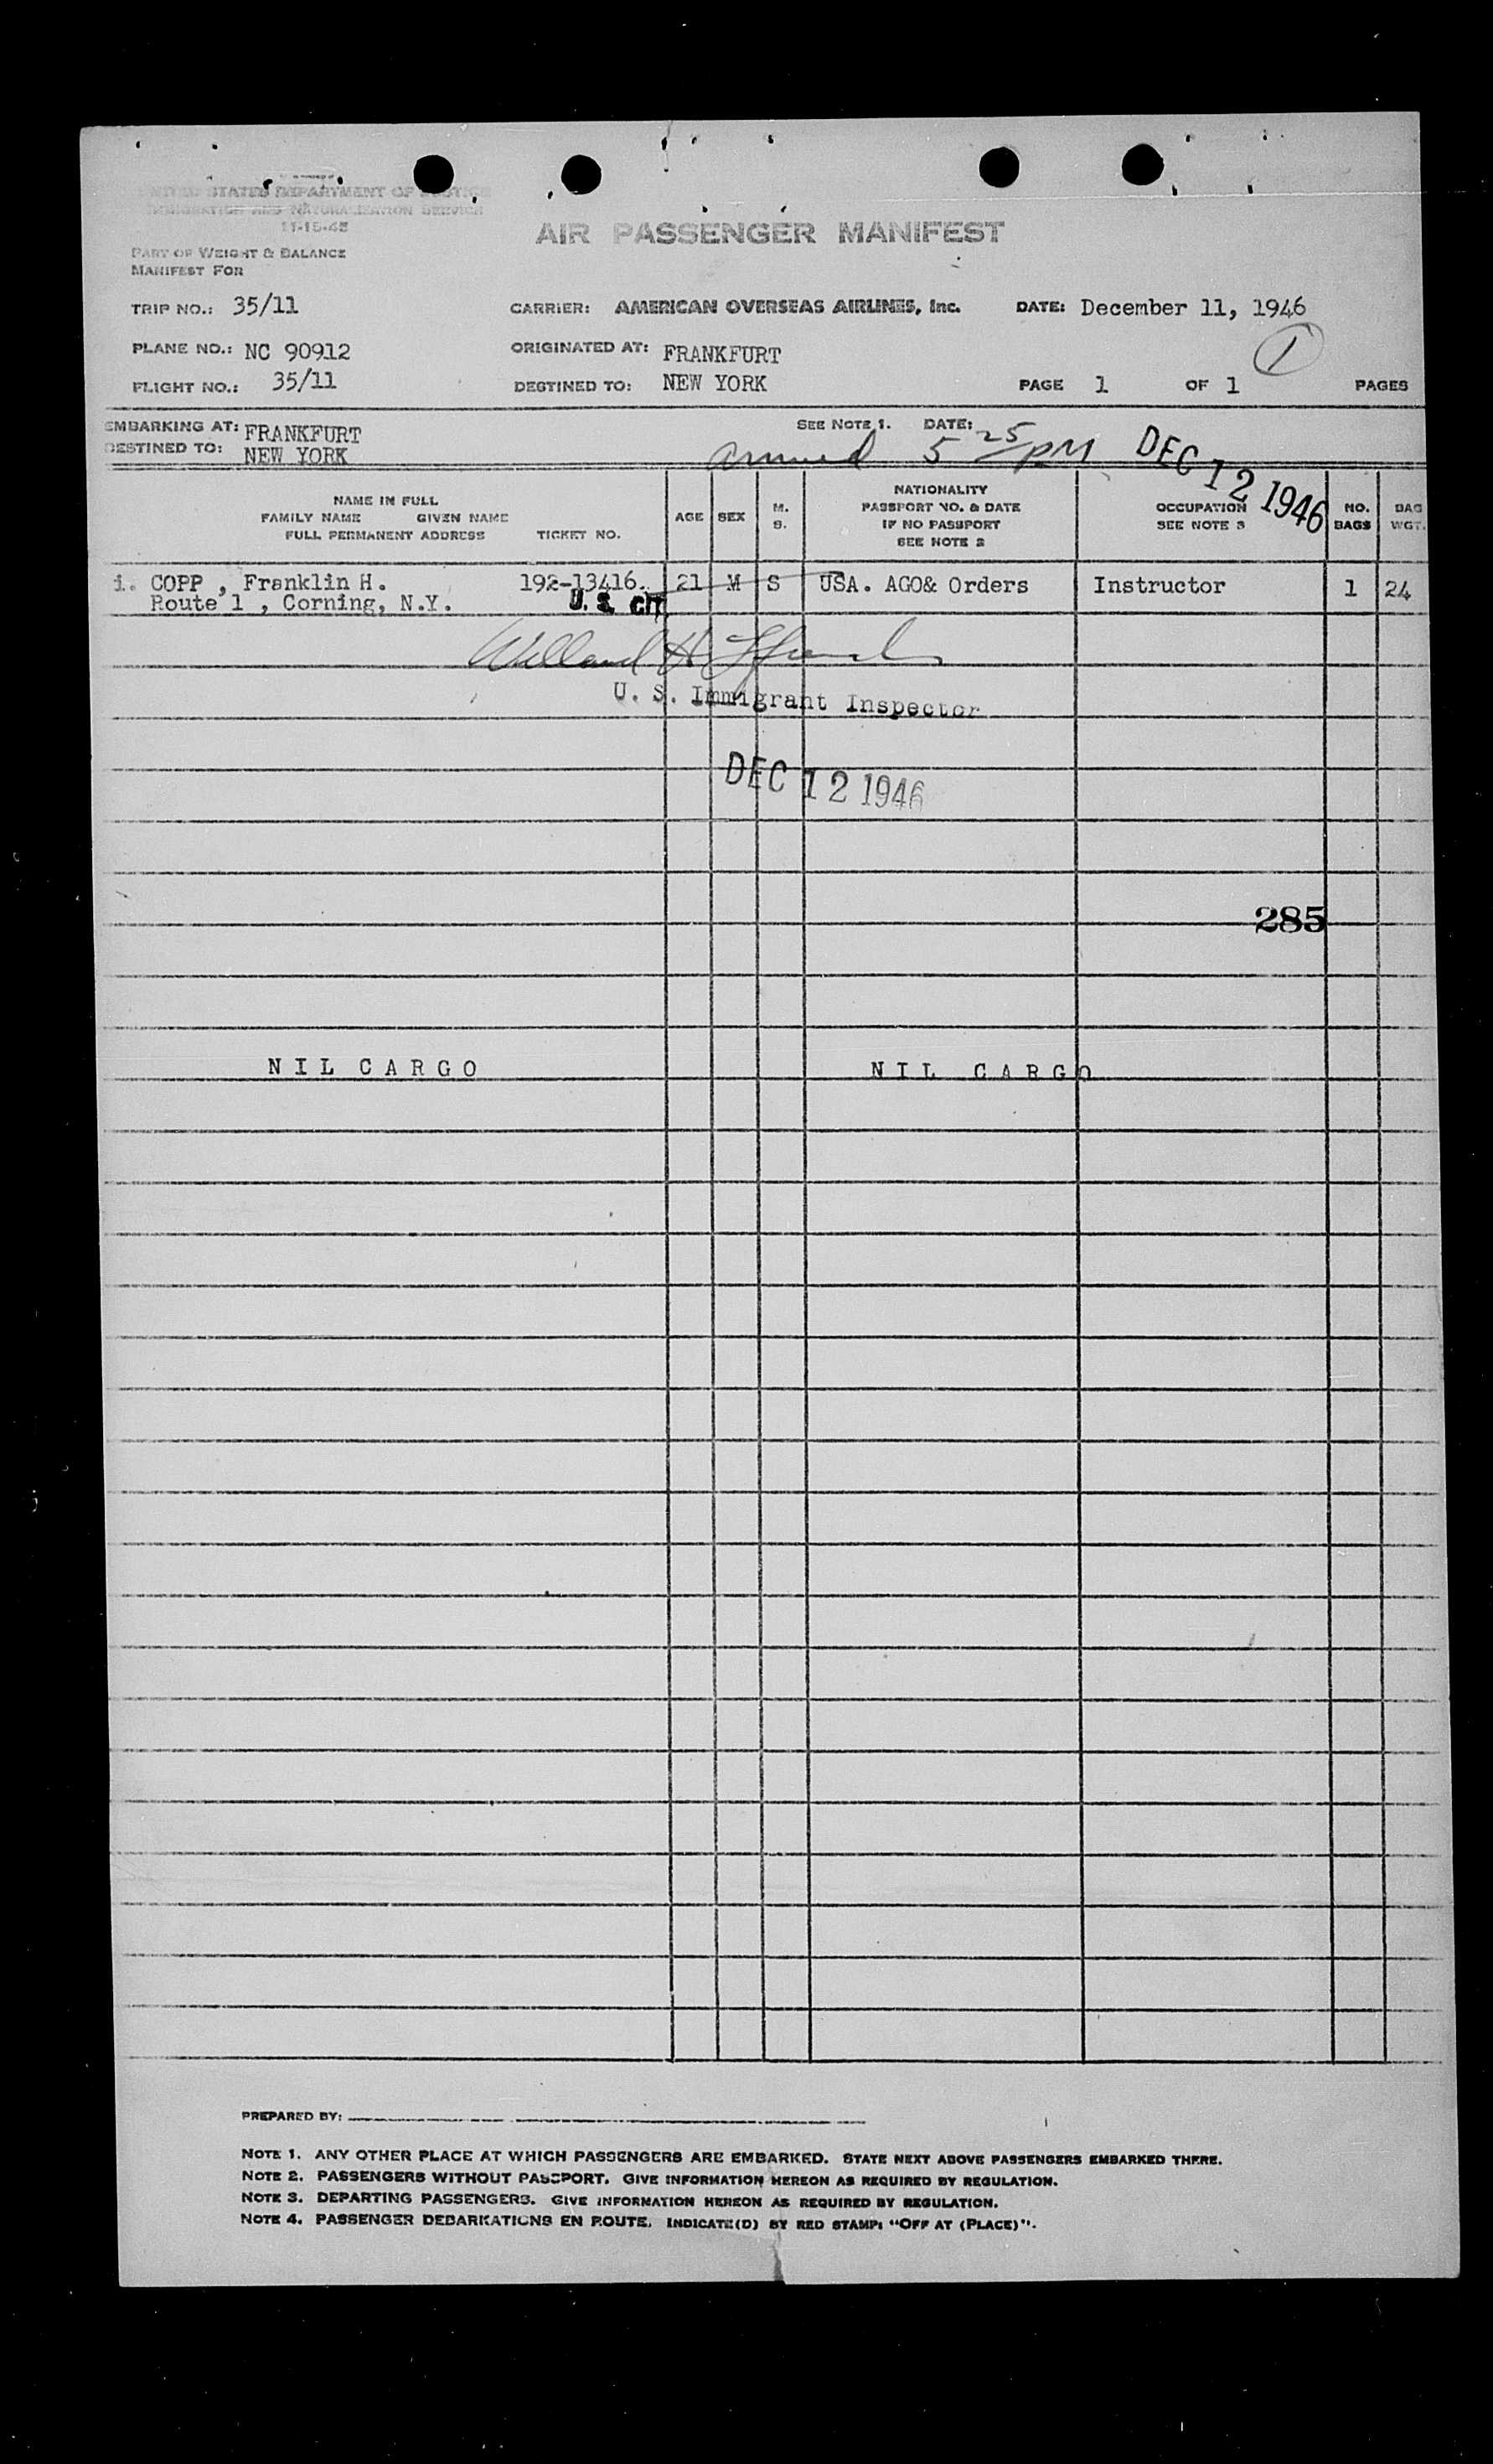 UNITED STATES DEPARTMENT OF JUSTICE
IMMIGRATION AND NATURALIZATION SERVICE
11-15-45
AIR PASSENGER MANIFEST
PART OF WEIGHT & BALANCE
MANIFEST FOR
TRIP NO.: 35/11 CARRIER: AMERICAN OVERSEAS AIRLINES, Inc. DATE: December 11, 1946
PLANE NO.: NC 90912 ORIGINATED AT: FRANKFURT 1
FLIGHT NO.: 35/11 DESTINED TO: NEW YORK PAGE 1 OF 1 PAGES
EMBARKING AT: FRANKFURT SEE NOTE 1. DATE:
DESTINED TO: NEW YORK arrived 5 25 PM DEC 12 1946
NAME IN FULL
FAMILY NAME GIVEN NAME
FULL PERMANENT ADDRESS TICKET NO. AGE SEX M. S. NATIONALITY PASSPORT NO. & DATE IF NO PASSPORT SEE NOTE 2 OCCUPATION SEE NOTE 3 NO. BAGS BAG WGT.
1. COPP , Franklin H. 192-13416. 21 M S USA. AGO& Orders Instructor 1 24
Route 1 , Corning, N.Y. U. S. CIT
Willard H
U. S. Immigrant Inspector
DEC 12 1946
285
NIL CARGO NIL CARGO
PREPARED BY:
NOTE 1. ANY OTHER PLACE AT WHICH PASSENGERS ARE EMBARKED. STATE NEXT ABOVE PASSENGERS EMBARKED THERE.
NOTE 2. PASSENGERS WITHOUT PASSPORT. GIVE INFORMATION HEREON AS REQUIRED BY REGULATION.
NOTE 3. DEPARTING PASSENGERS. GIVE INFORMATION HEREON AS REQUIRED BY REGULATION.
NOTE 4. PASSENGER DEBARKATIONS EN ROUTE. INDICATE(D) BY RED STAMP: "OFF AT (PLACE)".